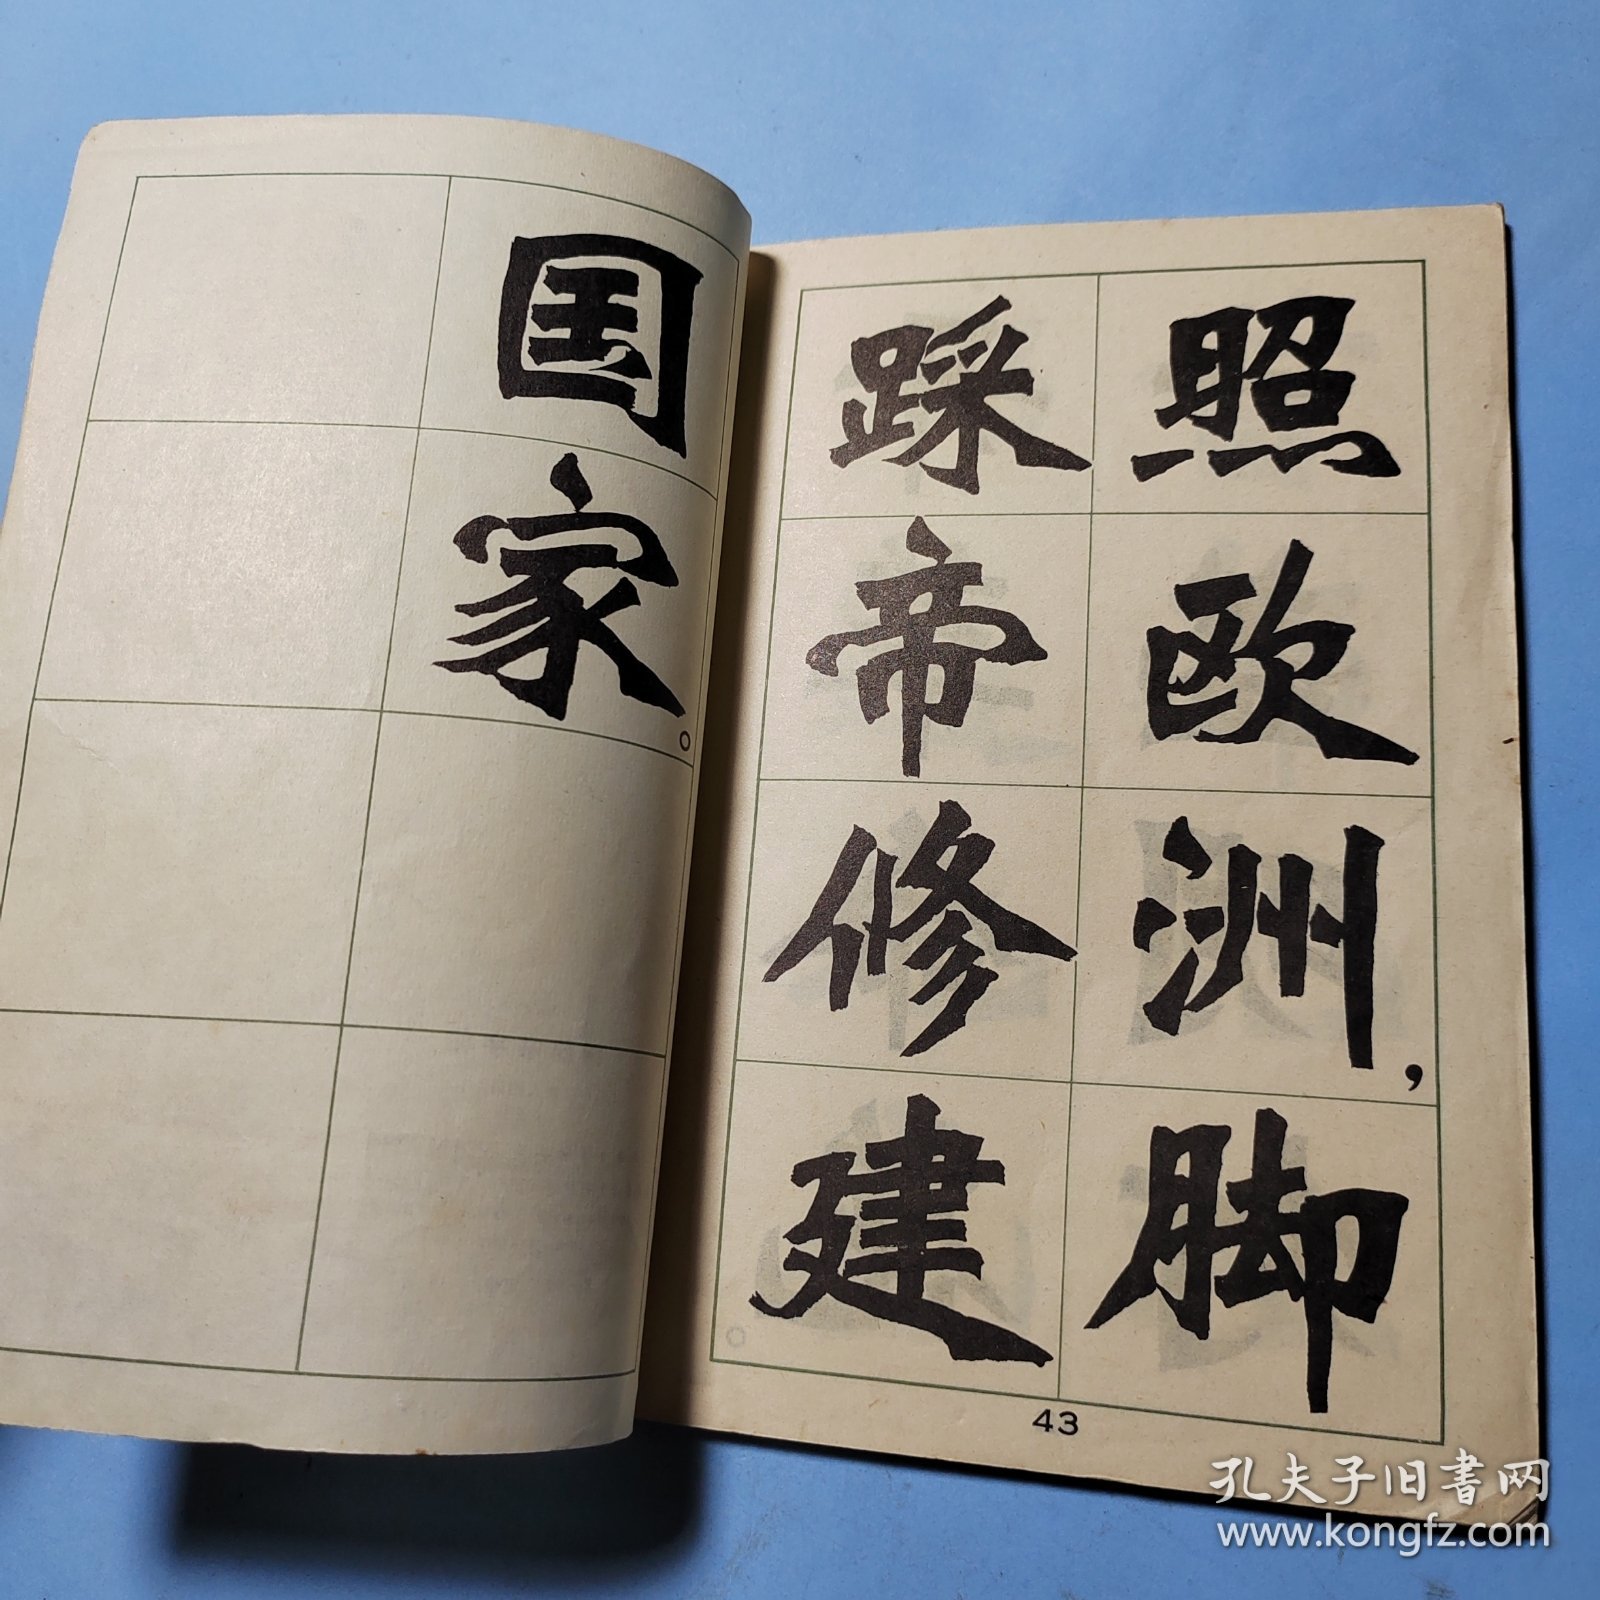 照欧洲，脚
踩帝修建
43
国家。
孔夫子旧书网
www.kongfz.com